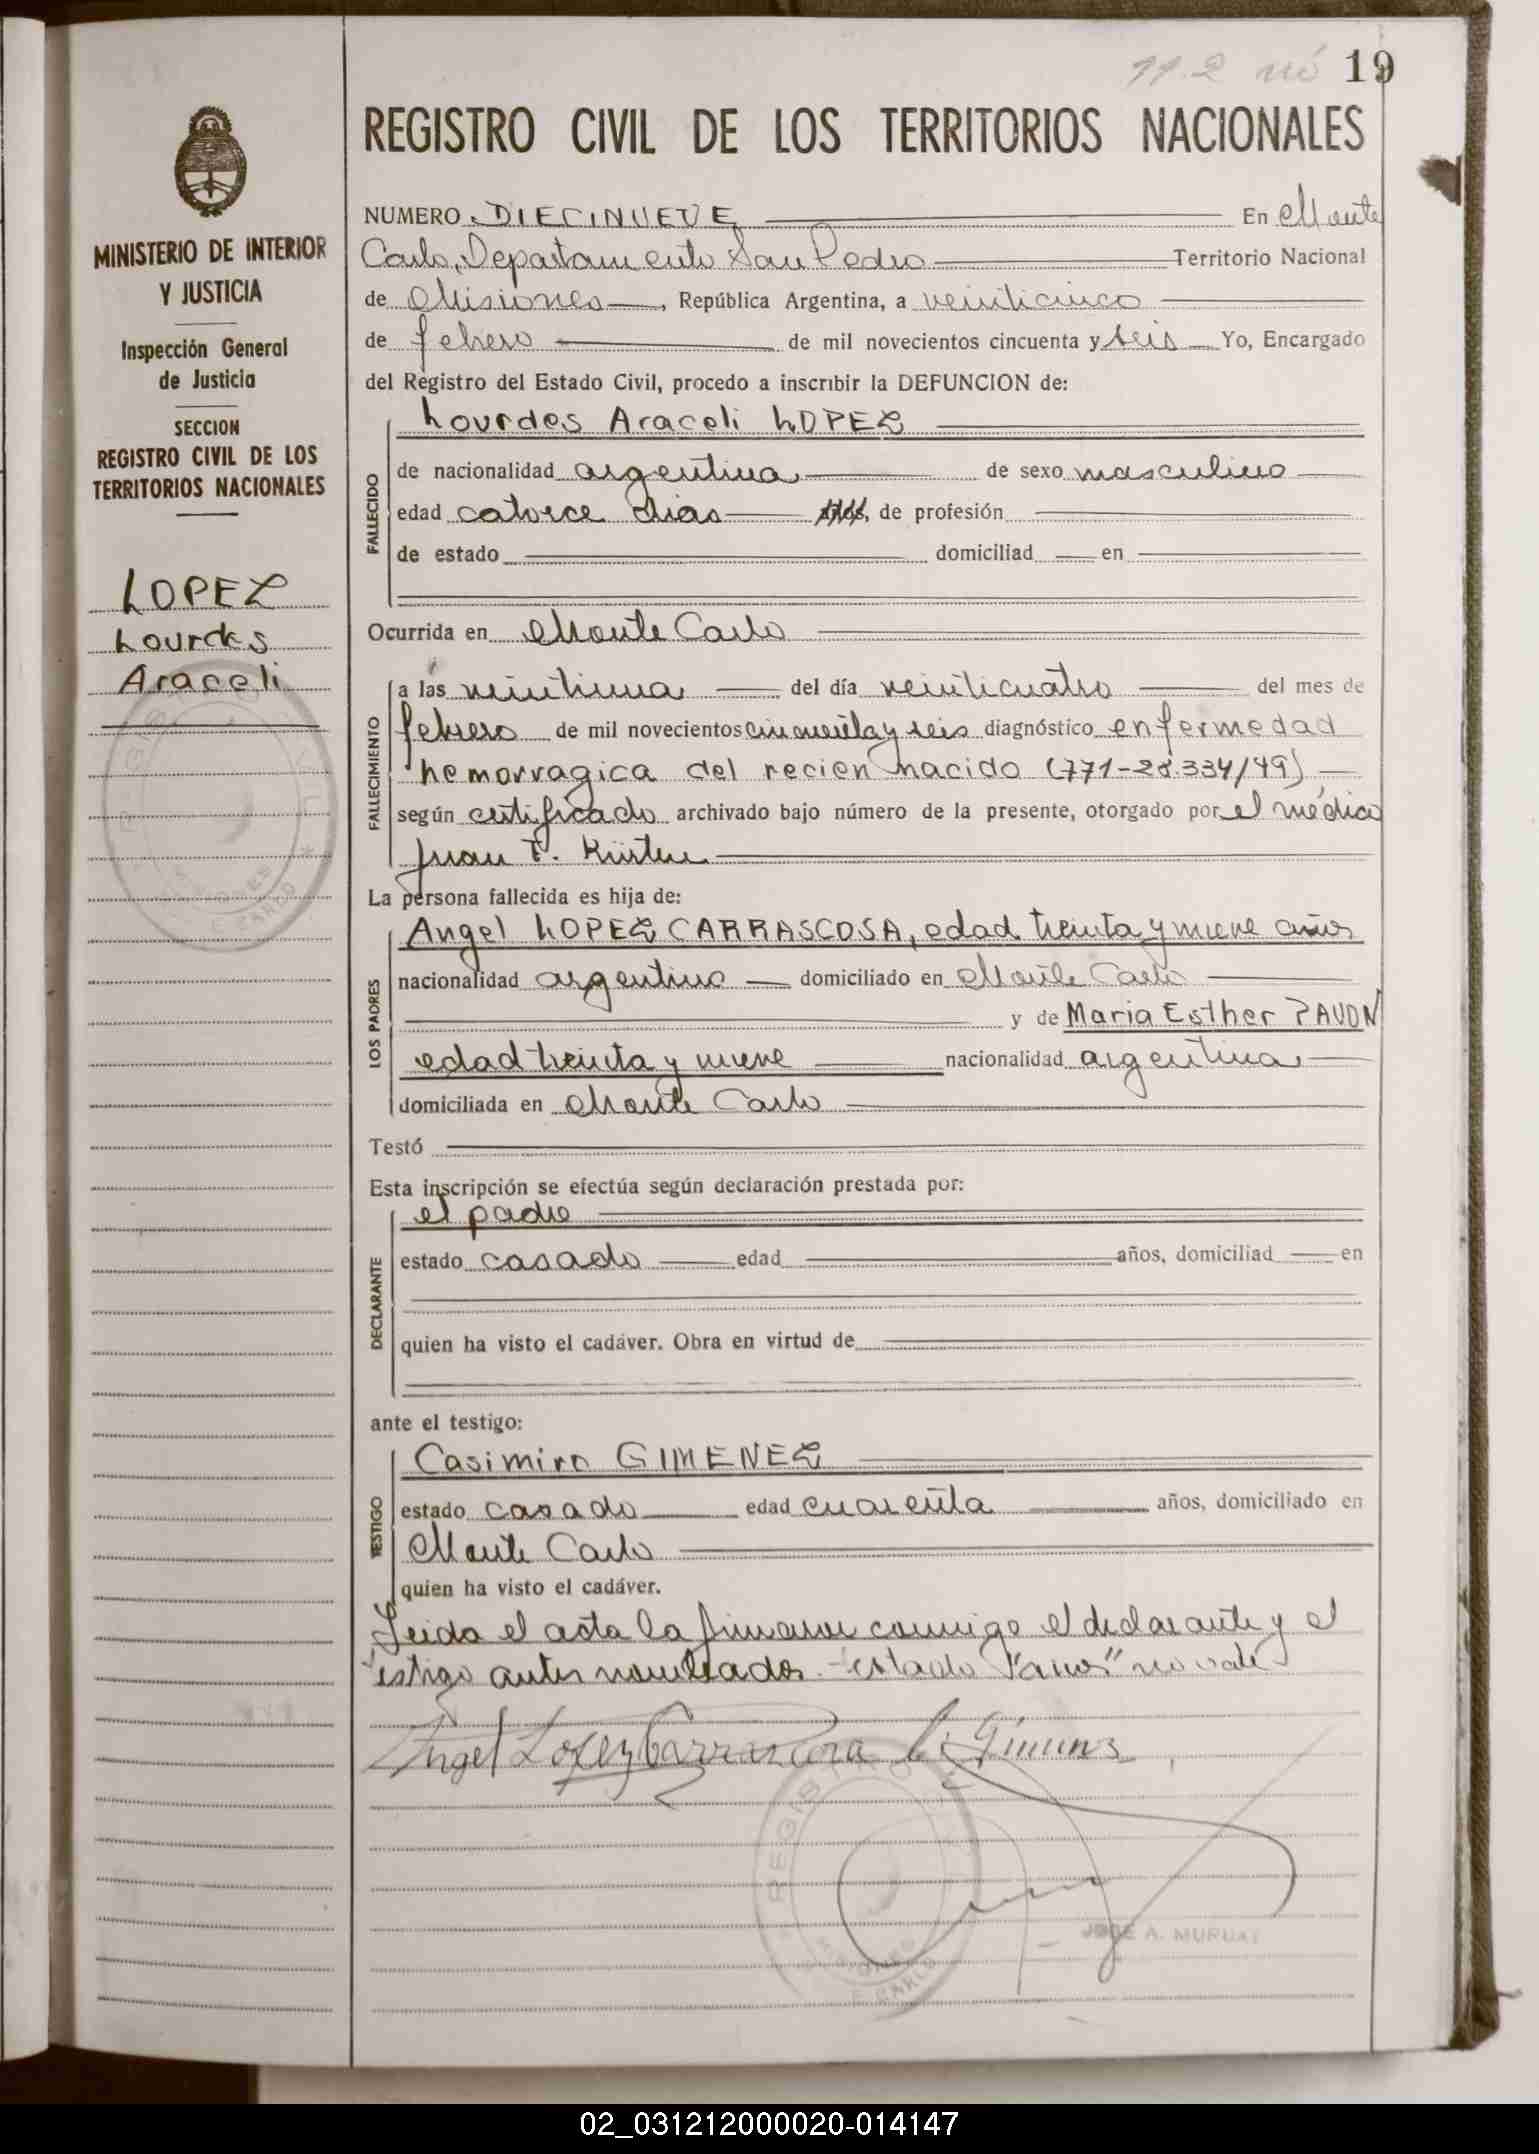 19
REGISTRO CIVIL DE LOS TERRITORIOS NACIONALES
MINISTERIO DE INTERIOR
Y JUSTICIA
Inspección General
de Justicia
SECCION
REGISTRO CIVIL DE LOS
TERRITORIOS NACIONALES
LOPEZ
Lourdes
Araceli
NUMERO DIECINUEVE En Monte
Carlo, Departamento San Pedro Territorio Nacional
de Misiones, República Argentina, a veinticinco
de febrero de mil novecientos cincuenta y seis Yo, Encargado
del Registro del Estado Civil, procedo a inscribir la DEFUNCION de:
FALLECIDO
Lourdes Araceli LOPEZ
de nacionalidad argentina de sexo masculino
edad catorce dias años, de profesión
de estado domiciliad en
Ocurrida en Monte Carlo
FALLECIMIENTO
a las veintiuna del día veinticuatro del mes de
febrero de mil novecientos cincuenta y seis diagnóstico enfermedad
hemorragica del recien nacido (771-28.334/49)
según certificado archivado bajo número de la presente, otorgado por el médico
Juan F.
La persona fallecida es hija de:
LOS PADRES
Angel LOPEZ CARRASCOSA, edad treinta y nueve años
nacionalidad argentino domiciliado en Monte Carlo
y de Maria Esther PAVON
edad treinta y nueve nacionalidad argentina
domiciliada en Monte Carlo
Testó
Esta inscripción se efectúa según declaración prestada por:
DECLARANTE
el padre
estado casado edad años, domiciliad en
quien ha visto el cadáver. Obra en virtud de
ante el testigo:
TESTIGO
Casimiro GIMENEZ
estado casado edad cuarenta años, domiciliado en
Monte Carlo
quien ha visto el cadáver.
Leida el acta la firmaron conmigo el declarante y el
testigo antes nombrados.- testado "años" no vale
Angel Lopez Carrascosa C. Gimenez
REGISTRO
MISIONES
E. CARLO
JOSE A. MURUAT
02_031212000020-014147